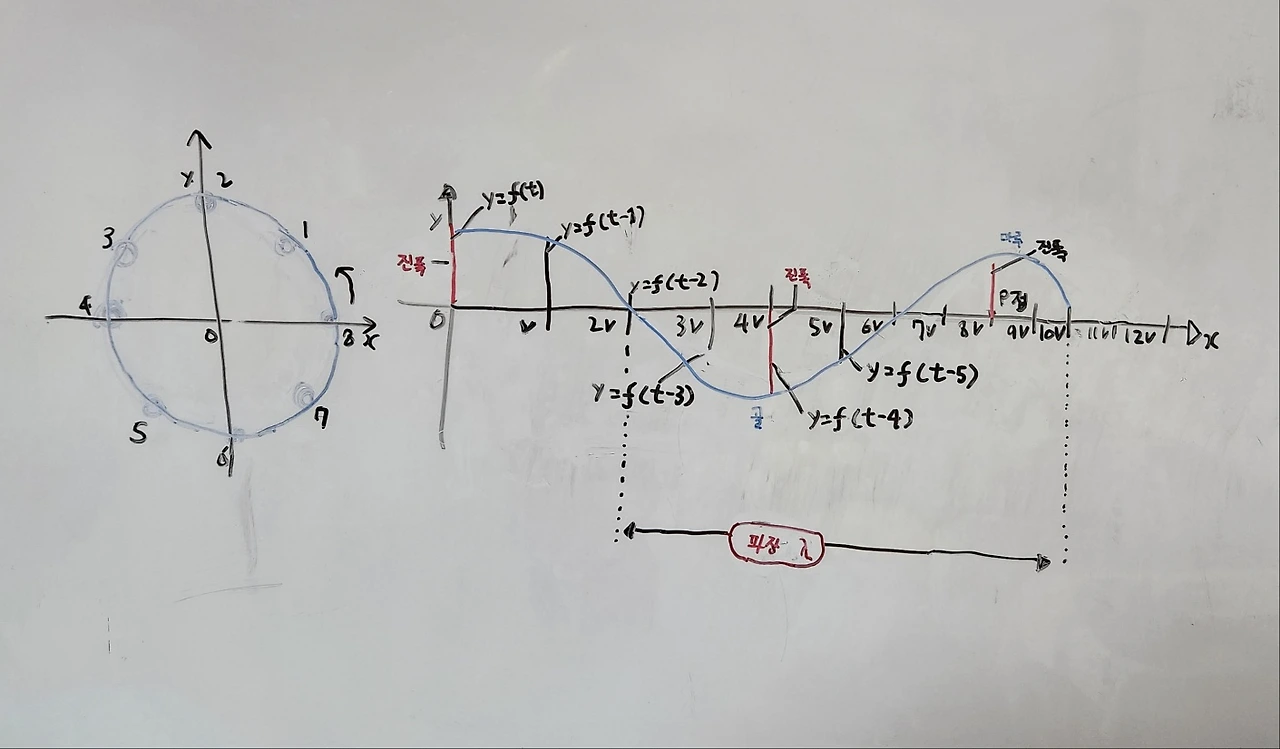 y
2
1
3
4
0
8
x
5
7
6
y
y=f(t)
y=f(t-1)
진폭
y=f(t-2)
진폭
마루
진폭
P점
0
v
2v
3v
4v
5v
6v
7v
8v
9v
10v
11v
12v
x
y=f(t-3)
골
y=f(t-4)
y=f(t-5)
파장 λ